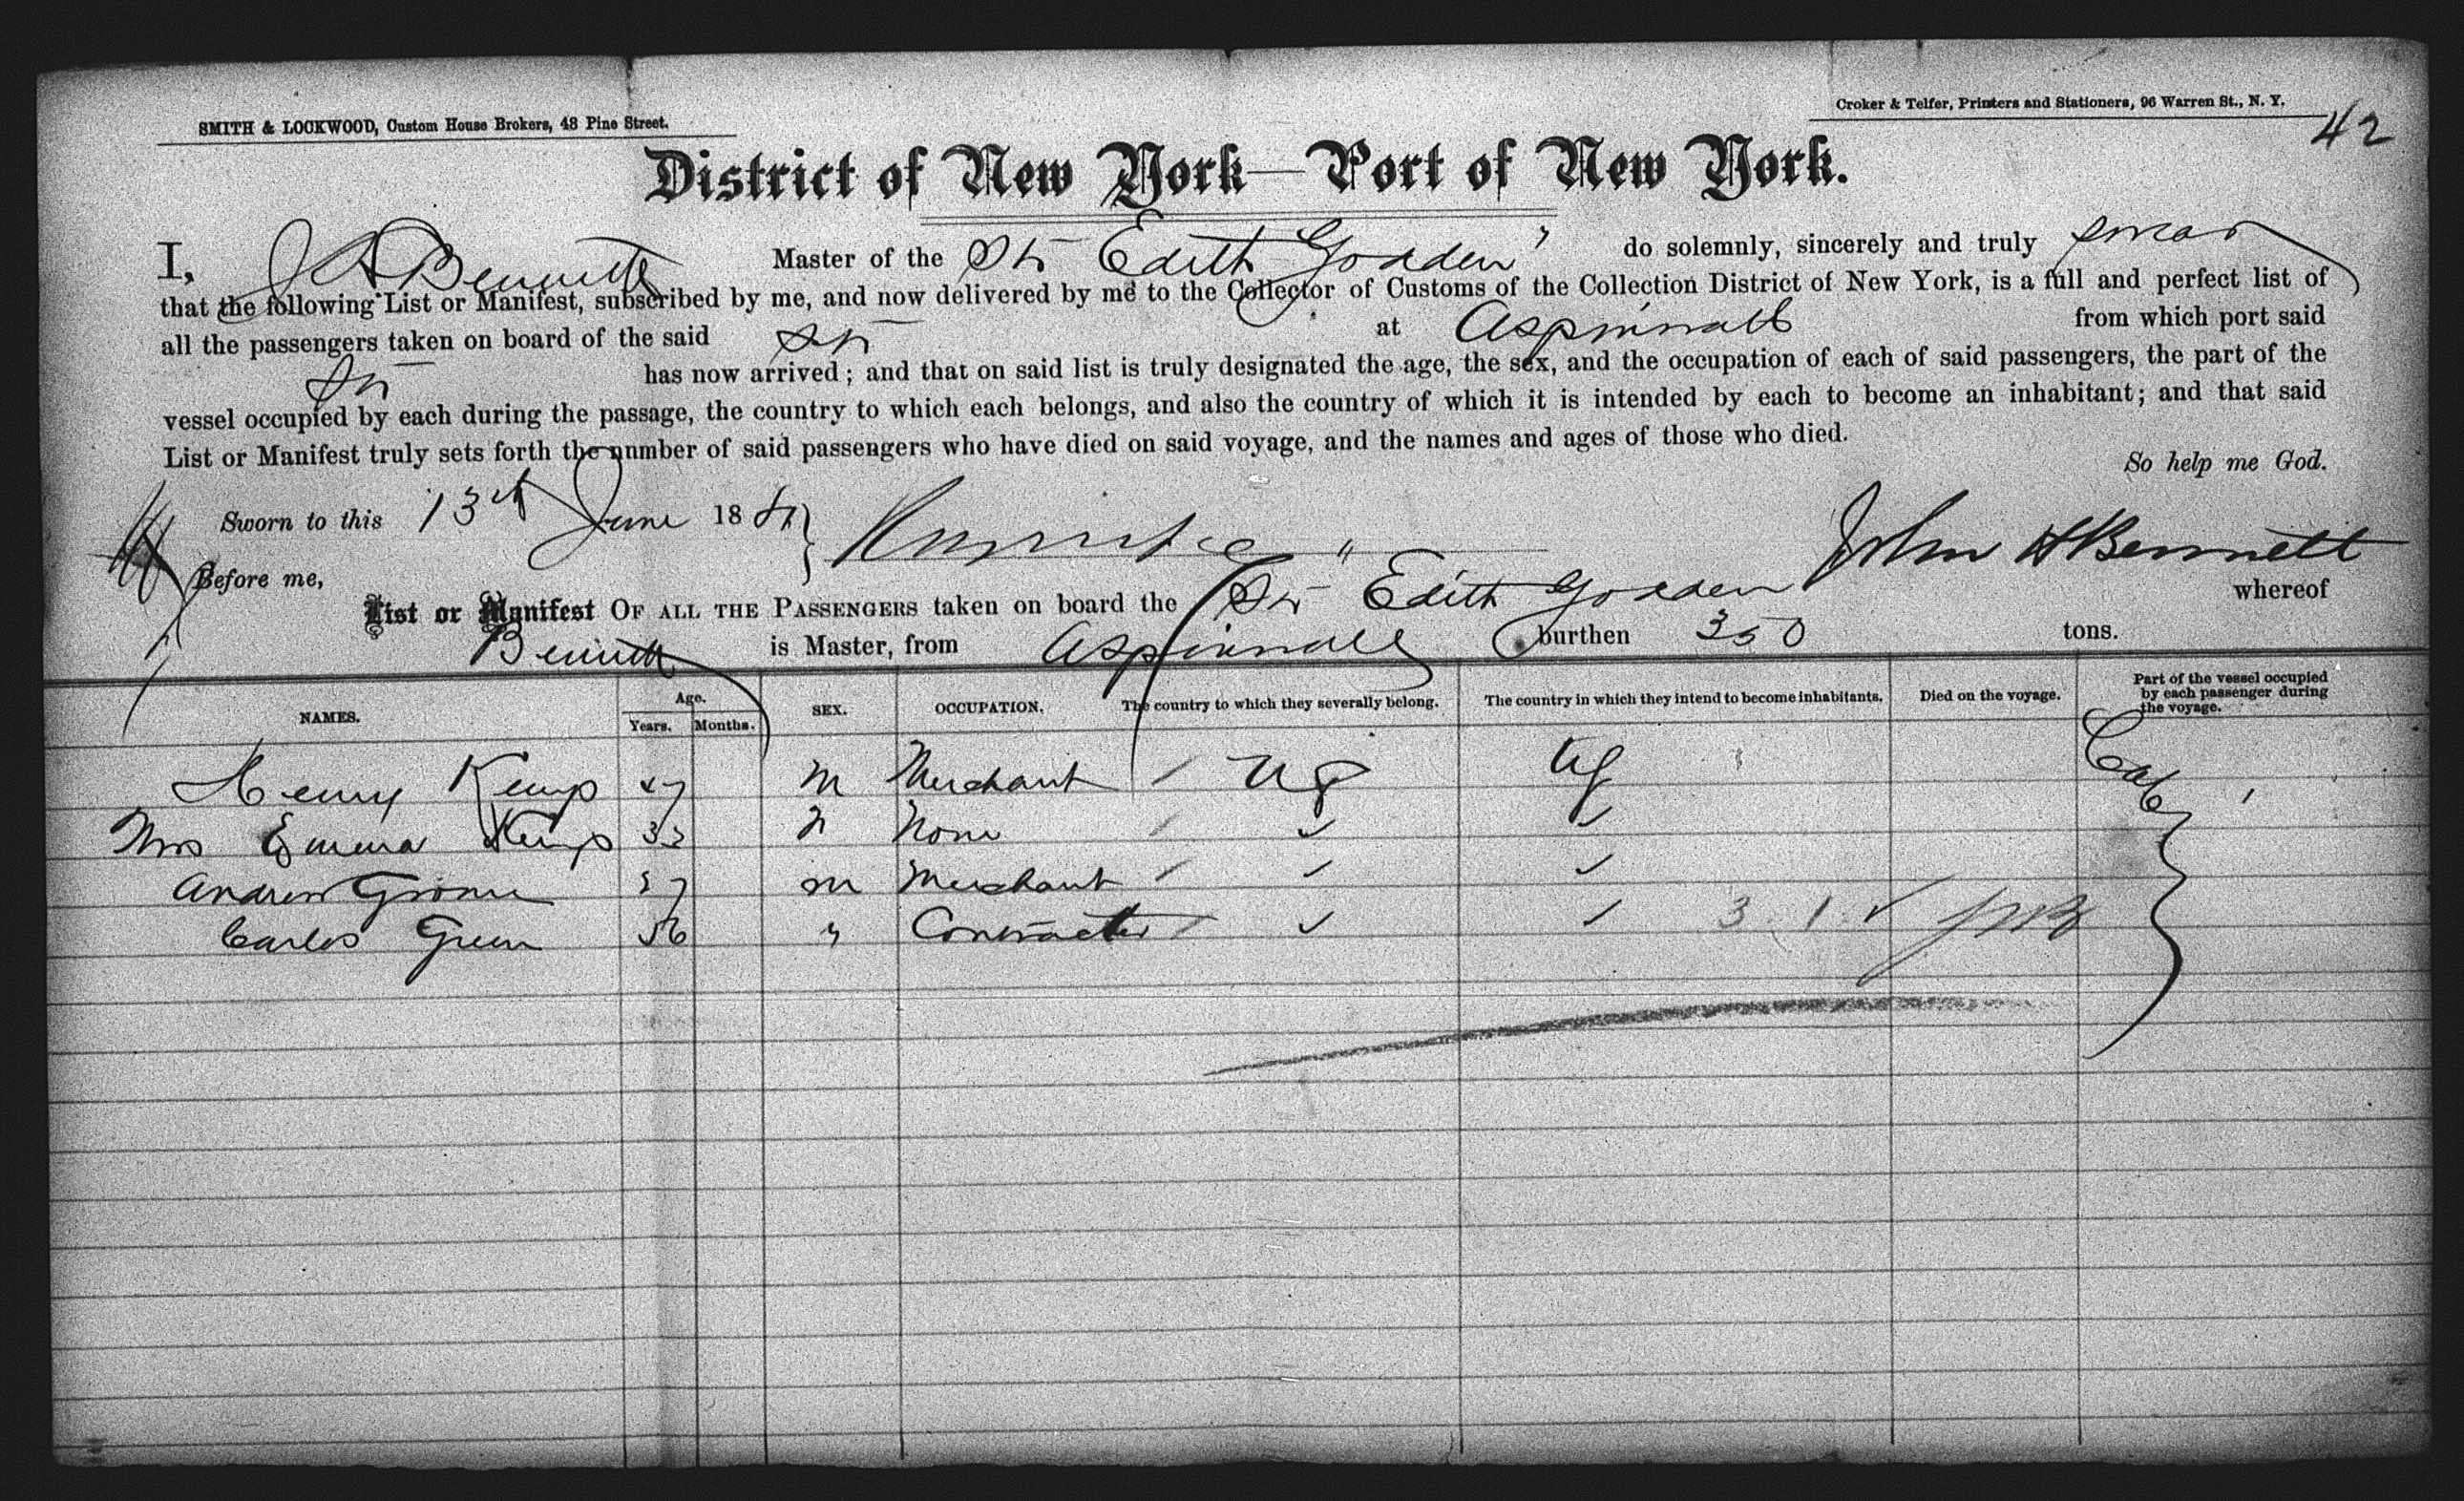 SMITH & LOCKWOOD, Custom House Brokers, 48 Pine Street.
Croker & Telfer, Printers and Stationers, 96 Warren St., N. Y.
42
District of New York—Port of New York.
I, J H Bennett Master of the Str Edith Godden" do solemnly, sincerely and truly swear
that the following List or Manifest, subscribed by me, and now delivered by me to the Collector of Customs of the Collection District of New York, is a full and perfect list of
all the passengers taken on board of the said Str at Aspinwall from which port said
Str has now arrived; and that on said list is truly designated the age, the sex, and the occupation of each of said passengers, the part of the
vessel occupied by each during the passage, the country to which each belongs, and also the country of which it is intended by each to become an inhabitant; and that said
List or Manifest truly sets forth the number of said passengers who have died on said voyage, and the names and ages of those who died.
So help me God.
Sworn to this 13th June 1881
John H Bennett
Before me,
List or Manifest OF ALL THE PASSENGERS taken on board the Str Edith Godden whereof
Bennett is Master, from Aspinwall burthen 350 tons.
NAMES. Age. Years. Months. SEX. OCCUPATION. The country to which they severally belong. The country in which they intend to become inhabitants. Died on the voyage. Part of the vessel occupied by each passenger during the voyage.
Henry Kemp 47 M Merchant US US Cab
Mrs Emma Kemp 33 None ✓ ✓
Andrew 57 m Merchant ✓ ✓
Carlos Green 56 " Contractor ✓ ✓ 3 1 ✓